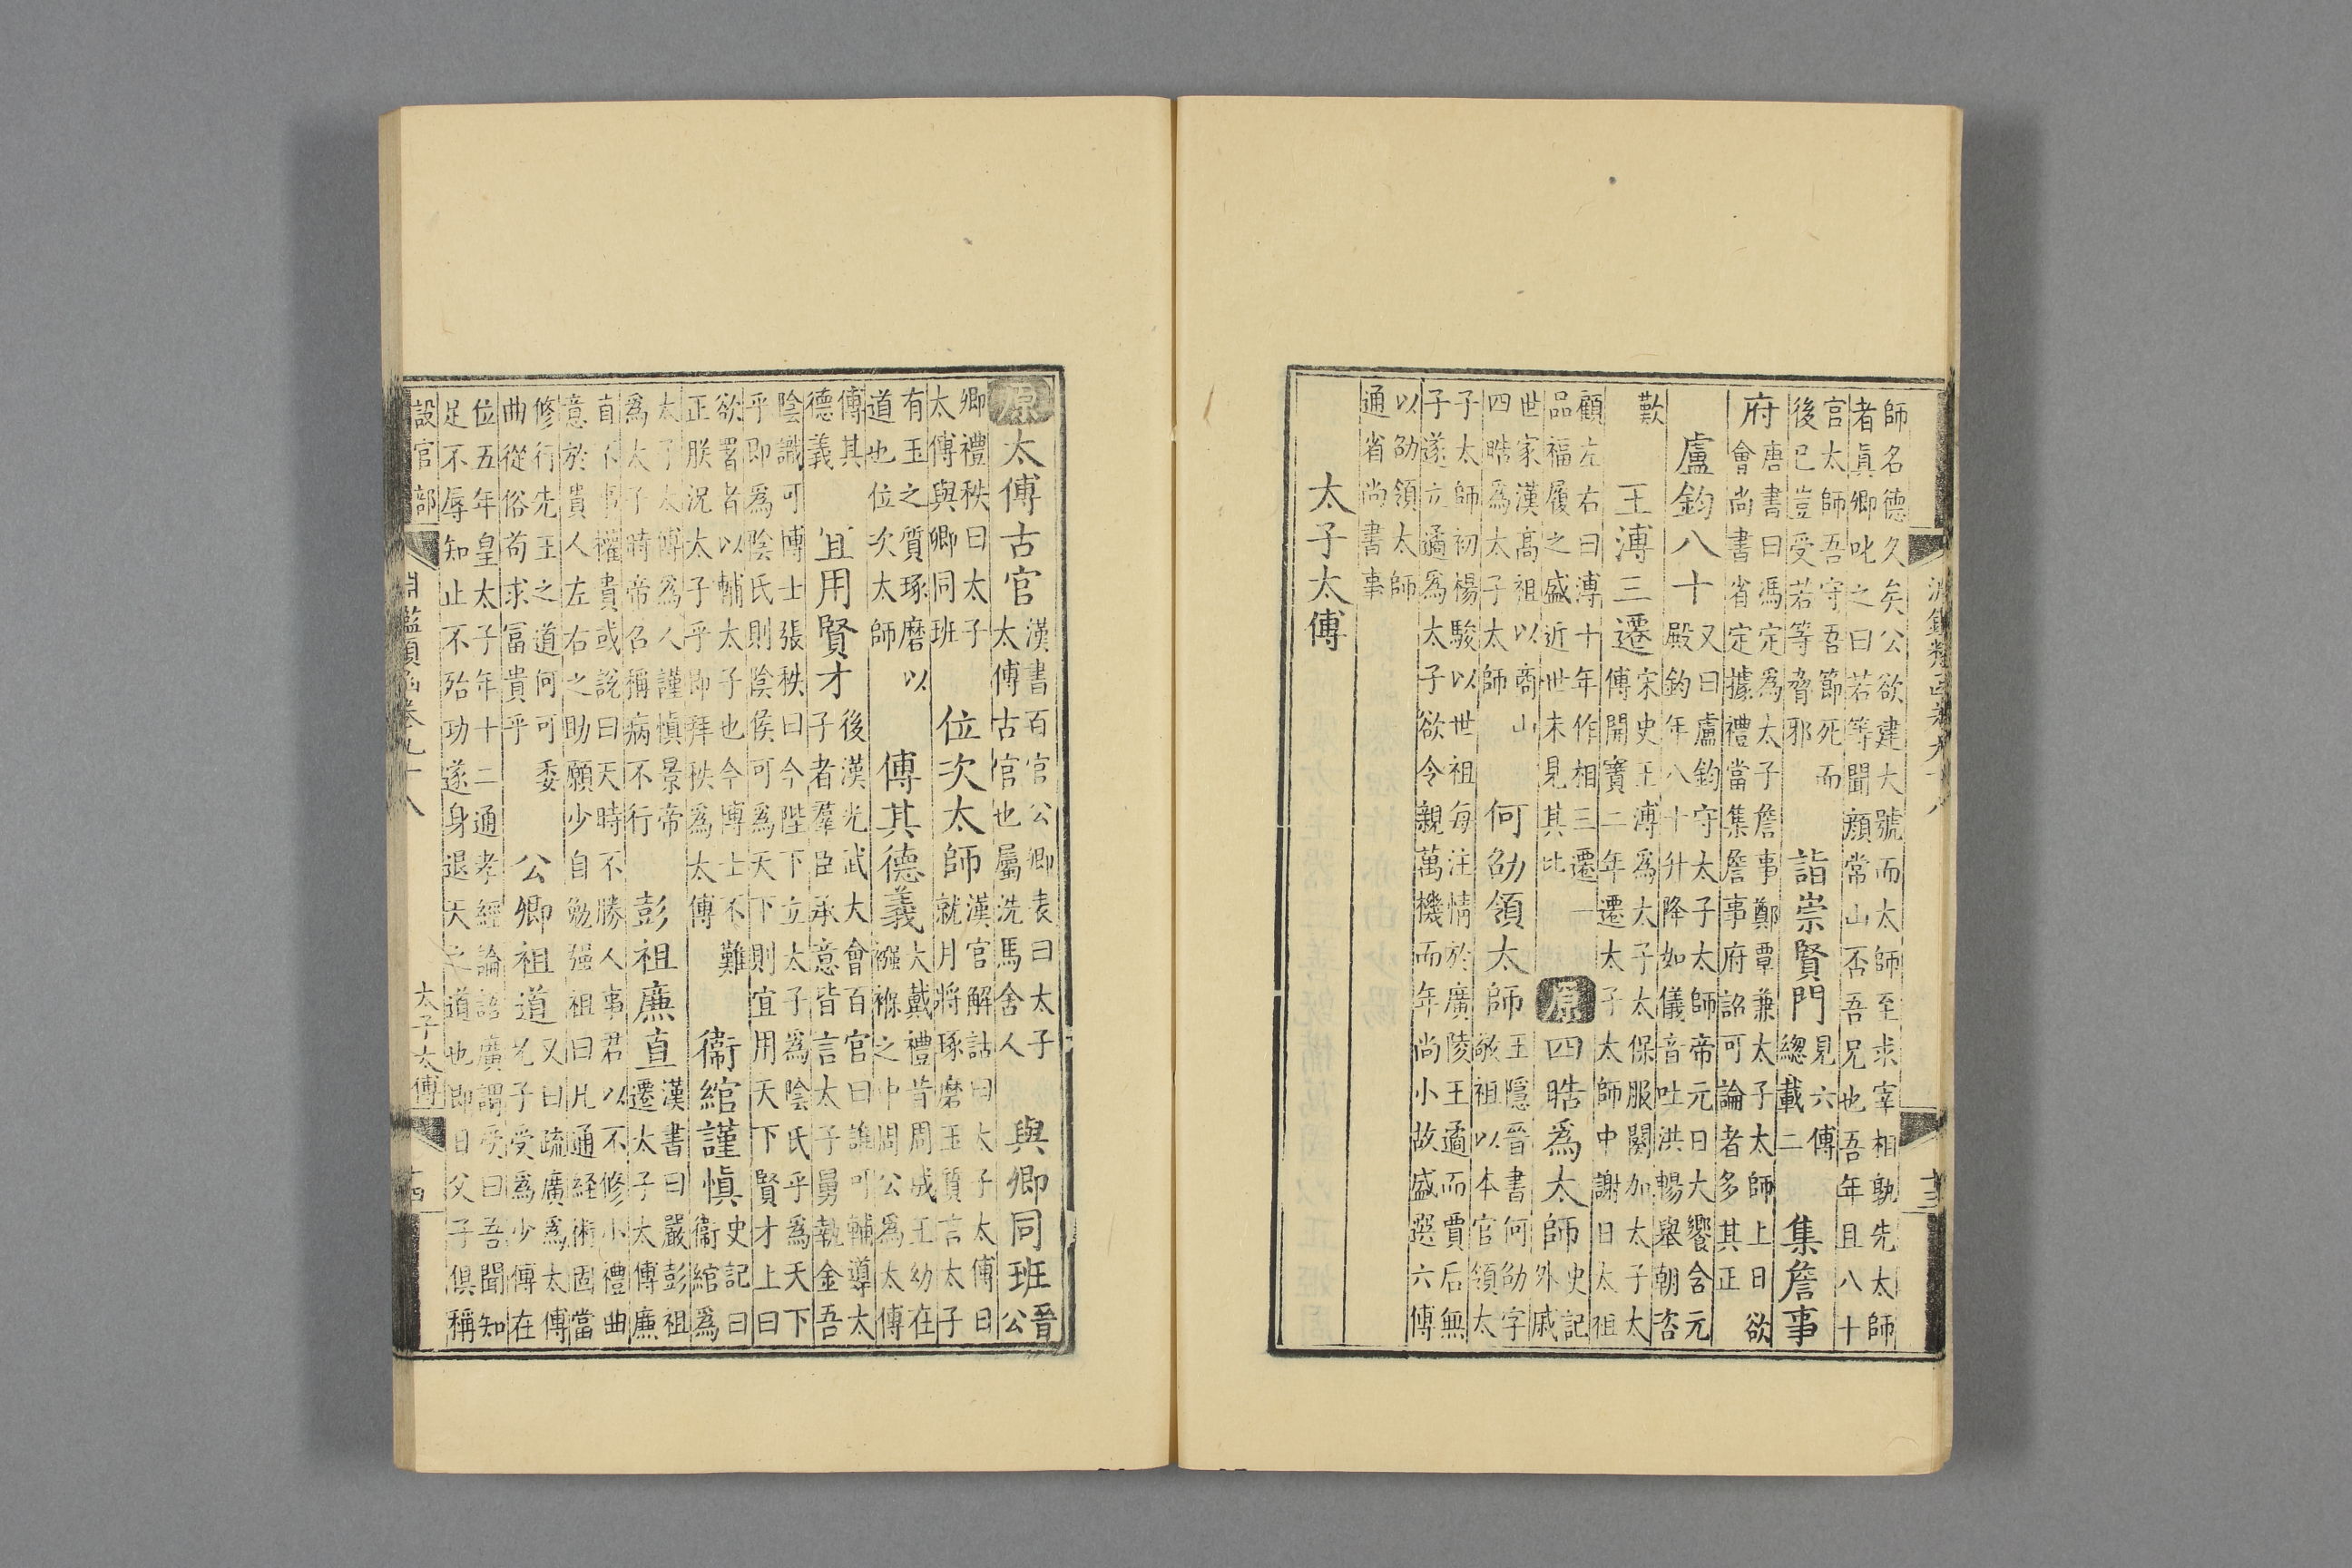 師名德久矣公欲建大號而太師至求宰相孰先太師
者眞卿叱之曰若等聞顏常山否吾兄也吾年且八十
官太師吾守吾節死而
後已豈受若等脅邪
詣崇賢門
見六傳
總載二
集詹事
府
唐書曰馮定爲太子詹事鄭覃兼太子太師上日欲
會尚書省定據禮當集詹事府詔可論者多其正
盧鈞八十
又曰盧鈞守太子太師帝元日大饗含元
殿鈞年八十升降如儀音吐洪暢舉朝咨
歎
王溥三遷
宋史王溥爲太子太保服闋加太子太
傅開寶二年遷太子太師中謝日太祖
顧左右曰溥十年作相三遷一
品福履之盛近世未見其比
原
四皓爲太師
史記
外戚
世家漢高祖以商山
四皓爲太子太師
何劭領太師
王隱晉書何劭字
敬祖以本官領太
子太師初楊駿以世祖每注情於廣陵王遹而賈后無
子遂立遹爲太子欲令親萬機而年尚小故盛選六傅
以劭領太師
通省尚書事
太子太傅
原
太傅古官
漢書百官公卿表曰太子
太傅古官也屬洗馬舍人
與卿同班
晉
公
卿禮秩曰太子
太傅與卿同班
位次太師
漢官解詁曰太子太傅日
就月將琢磨玉質言太子
有玉之質琢磨以
道也位次太師
傅其德義
大戴禮昔周成王幼在
襁褓之中周公爲太傅
傅其
德義
宜用賢才
後漢光武大會百官曰誰可輔導太
子者羣臣承意皆言太子舅執金吾
陰識可博士張秩曰今陛下立太子爲陰氏乎爲天下
乎即爲陰氏則陰侯可爲天下則宜用天下賢才上曰
欲置者以輔太子也今博士不難
正朕況太子乎即拜秩爲太傅
衞綰謹慎
史記曰
衞綰爲
太子太傅爲人謹慎景帝
爲太子時帝召稱病不行
彭祖廉直
漢書曰嚴彭祖
遷太子太傅廉
直不事權貴或說曰天時不勝人事君以不修小禮曲
意於貴人左右之助願少自勉强祖曰凡通経術固當
修行先王之道何可委
曲從俗苟求富貴乎
公卿祖道
又曰疏廣爲太傅
兄子受爲少傅在
位五年皇太子年十二通孝經論語廣謂受曰吾聞知
足不辱知止不殆功遂身退天之道也即日父子俱稱
設官部
淵鑑類函卷九十八
太子太傅
十四